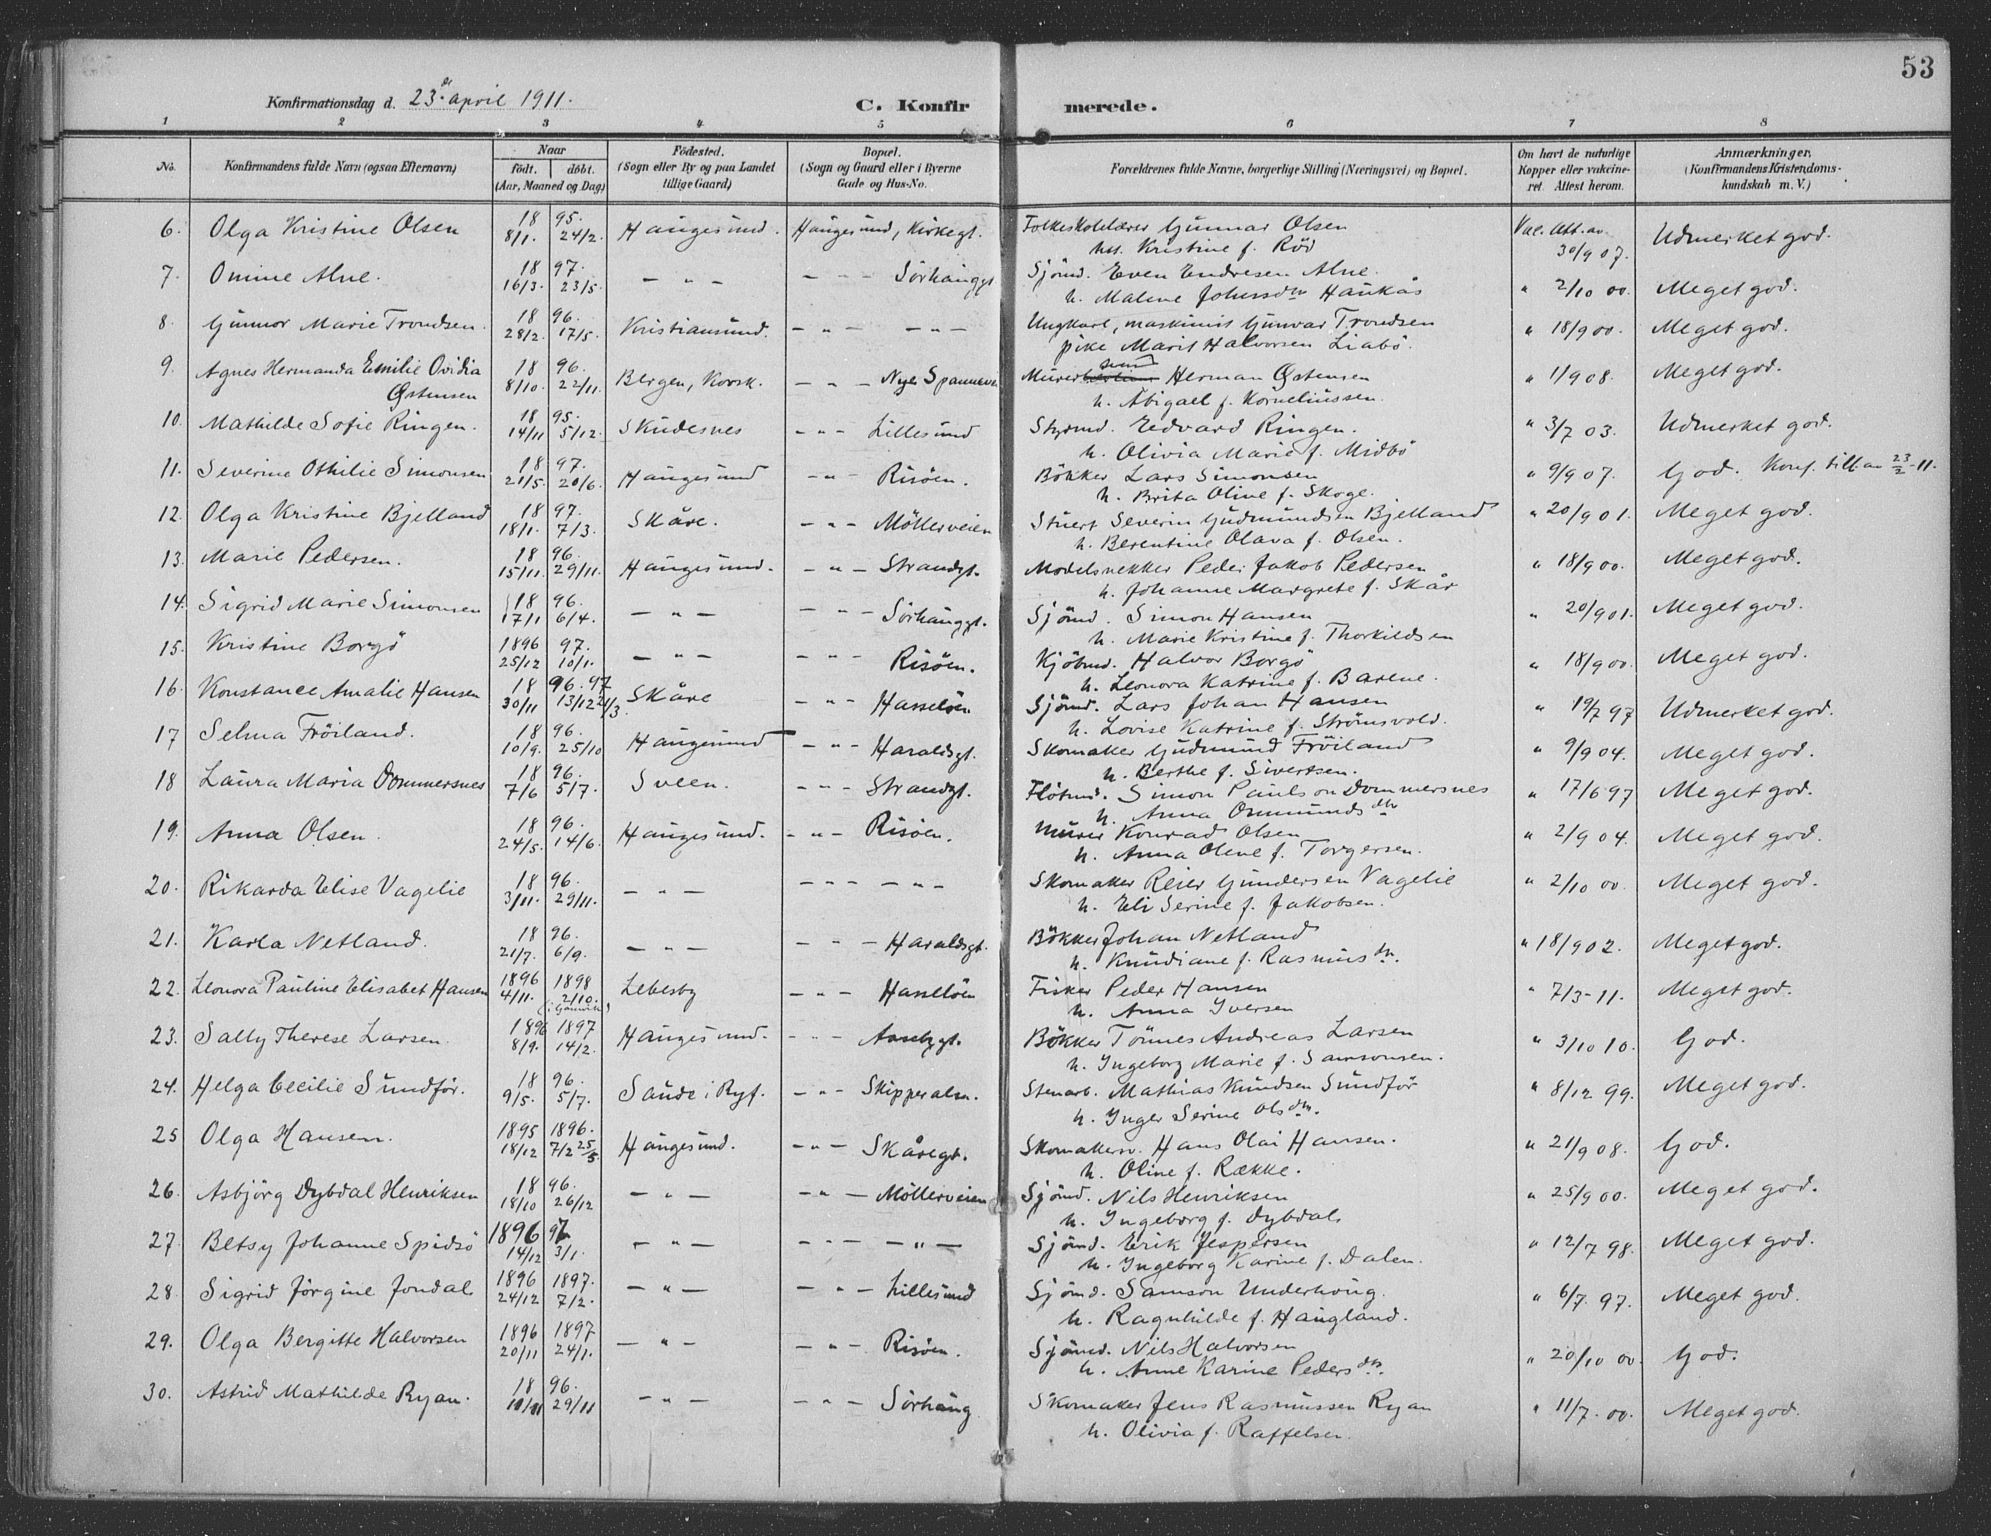 53
Konfirmationsdag d. 23de april 1911.
C. Konfirmerede.
1 2 3 4 5 6 7 8
No. | Konfirmandens fulde Navn (ogsaa Efternavn) | Naar født. døbt. (Aar, Maaned og Dag) | Fødested. (Sogn eller By og paa Landet tillige Gaard) | Bopæl. (Sogn og Gaard eller i Byerne Gade og Hus-No. | Forældrenes fulde Navne, borgerlige Stilling (Næringsvei) og Bopæl. | Om havt de naturlige Kopper eller vakcineret. Attest herom. | Anmærkninger. (Konfirmandens Kristendomskundskab m. V.)
6. Olga Kristine Olsen | 18 95. 8/1. 24/2. | Haugesund. | Haugesund, Kirkegt. | Folkeskolelærer Gunnar Olsen
hst. Kristine f. Röd | Vac. Att. av 30/9 07. | Udmerket god.
7. Omine Alne. | 18 97. 16/3. 23/5. | — " — | — " — Sörhauggt | Sjömd. Even Endresen Alne.
h. Malene Johnsdtr Haukås | " 2/10 00. | Meget god.
8. Gunnor Marie Trondsen. | 18 96. 28/2. 17/5. | Kristiansund. | — " — — " — | Ungkarl, maskinist Gunvar Trondsen
pike Marit Halvorsen Liabö. | " 18/9 00. | Meget god.
9. Agnes Hermanda Emilie Ovidia
Østensen | 18 96. 8/10. 22/11. | Bergen, Korsk. | — " — Nye Spannevei | Murersvend Herman Østensen
h. Abigael f. Korneliussen. | " 1/9 08. | Meget god.
10. Mathilde Sofie Ringen. | 18 95. 14/11 5/12. | Skudesnes | — " — Lillesund | Styrmd. Edvard Ringen.
h. Olivia Marie f. Midbö | " 3/7 03. | Udmerket god.
11. Severine Othilie Simonsen | 18 97. 21/5. 20/6. | Haugesund | — " — Risöen. | Bökker Lars Simonsen
h. Brita Oline f. Skoge. | " 9/9 07. | God. Konf. till. av 23/2-11.
12. Olga Kristine Bjelland | 18 97. 18/1. 7/3. | Skåre. | — " — Möllerveien | Stuert Severin Gudmundsen Bjelland
h. Berentine Olava f. Olsen. | " 20/9 01. | Meget god.
13. Marie Pedersen. | 18 96. 15/11. 29/11. | Haugesund. | — " — Strandgt. | Modelsnekker Peder Jakob Pedersen
h. Johanne Margrete f. Skår | " 18/9 00. | Meget god.
14. Sigrid Marie Simonsen | 18 96. 17/1 6/4. | — " — | — " — Sörhauggt. | Sjömd. Simon Hansen
h. Marie Kristine f. Thorkildsen | " 20/9 01. | Meget god.
15. Kristine Borgö | 1896 97. 25/12 10/1. | — " — | — " — Risöen. | Kjöbmd. Halvor Borgö
h. Leonora Katrine f. Barene. | " 18/9 00. | Meget god.
16. Konstance Amalie Hansen | 18 96. 97 30/11 13/12 21/3. | Skåre | — " — Hasselöen | Sjömd. Lars Johan Hansen
h. Lovise Katrine f. Strömsvold. | " 19/7 97 | Udmerket god.
17 Selma Fröiland. | 18 96. 10/9. 25/10 | Haugesund | — " — Haraldsgt. | Skomaker Gudmund Fröiland
h. Berthe f. Sivertsen. | " 9/9 04. | Meget god.
18 Laura Maria Dommersnes | 18 96. 7/6 5/7. | Sveen. | — " — Strandgt. | Flötmd. Simon Paulson Dommersnes
h. Anna Ommundsdtr | " 17/6 97 | Meget god.
19. Anna Olsen. | 18 96. 24/5. 14/6. | Haugesund. | — " — Risöen. | Murer Konrad Olsen
h. Anna Olene f. Torgersen. | " 2/9 04. | Meget god.
20. Rikarda Elise Vagelie | 18 96. 3/11. 29/11. | — " — | — " — — " — | Skomaker Reier Gundersen Vagelie
h. Eli Serine f. Jakobsen. | " 2/10 00. | Meget god.
21. Karla Netland. | 18 96. 21/7. 6/9. | — " — | — " — Haraldsgt. | Bökker Johan Netland
h. Knudiane f. Rasmusdtr. | " 18/9 02. | Meget god.
22. Leonora Pauline Elisabet Hansen | 1896 1898 4/11. 2/10. (i Gamvik) | Lebesby | — " — Hasselöen | Fisker Peder Hansen
h. Anna Iversen | " 7/3-11. | Meget god.
23. Sally Therese Larsen. | 1896 1897 8/9. 14/2. | Haugesund. | — " — Aasbygt. | Bökker Tönnes Andreas Larsen
h. Ingeborg Marie f. Samsonsen. | " 3/10 10. | God.
24. Helga Cecilie Sundför. | 18 96. 9/5. 5/7. | Saude i Ryf. | — " — Skipperalm. | Stenarb. Mathias Knudsen Sundför
h. Inger Serine Olsdtr. | " 8/12 99. | Meget god.
25 Olga Hansen. | 1895 1896. 18/12 7/2 25/5. | Haugesund. | — " — Skåregt. | Skomakersv. Hans Olai Hansen.
h. Oline f. Række. | " 21/9 08. | God.
26. Asbjörg Dybdal Henriksen | 18 96. 18/10 26/12 | — " — | — " — Möllerveien | Sjömd. Nils Henriksen
h. Ingeborg f. Dybdal. | " 25/9 00. | Meget god.
27. Betsy Johanne Spidsö | 1896 97. 14/12 3/1. | — " — | — " — | Sjömd. Erik Jespersen
h. Ingeborg Karine f. Dalen. | " 12/7 98. | Meget god.
28. Sigrid Jörgine Jondal. | 1896 1897. 24/12 7/2. | — " — | — " — Lillesund | Sjömd. Samson Underhaug.
h. Ragnhilde f. Haugland. | " 6/7. 97. | Meget god.
29. Olga Bergitte Halvorsen | 1896 1897 20/11 24/1. | — " — | — " — Risöen. | Sjömd. Nils Halvorsen
h. Anne Karine Pedersdtr. | " 20/10 00. | God.
30. Astrid Mathilde Ryan. | 18 96. 10/11 29/11 | — " — | — " — Sörhaug | Skomaker Jens Rasmussen Ryan
h. Olivia f. Raffelsen. | " 11/7. 00. | Meget god.